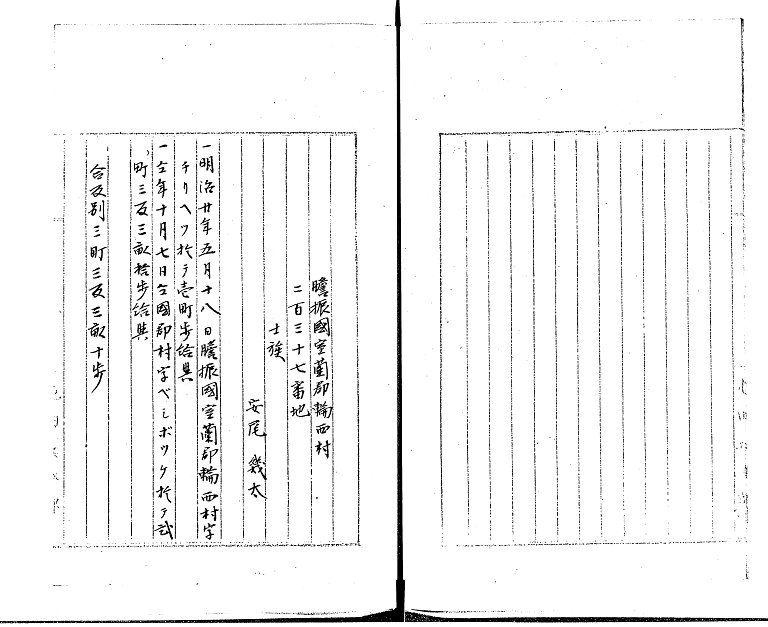 膽振國室蘭郡輪西村
二百三十七番地
士族
安尾 幾太
一明治廿年五月十八日膽振國室蘭郡輪西村字
チリヘツ於テ壱町歩給與
一仝年十月七日仝國郡村字ベシボツケ於テ弐
町三反三畝拾歩給與
合反別三町三反三畝十歩